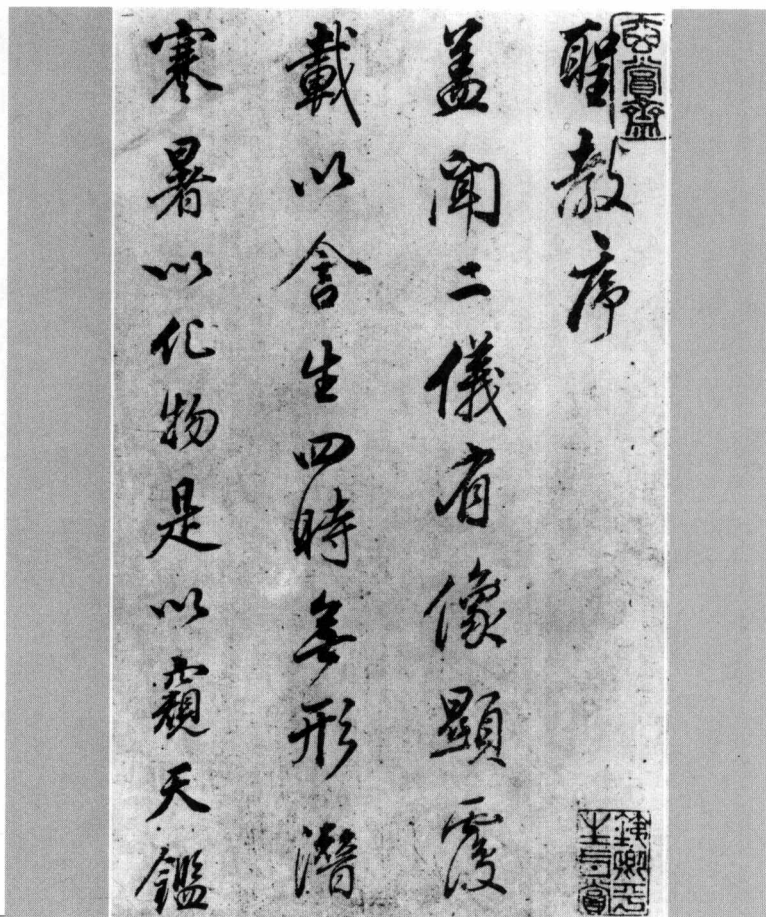 聖教序
蓋聞二儀有像顯覆
載以含生四時無形潛
寒暑以化物是以窺天鑑